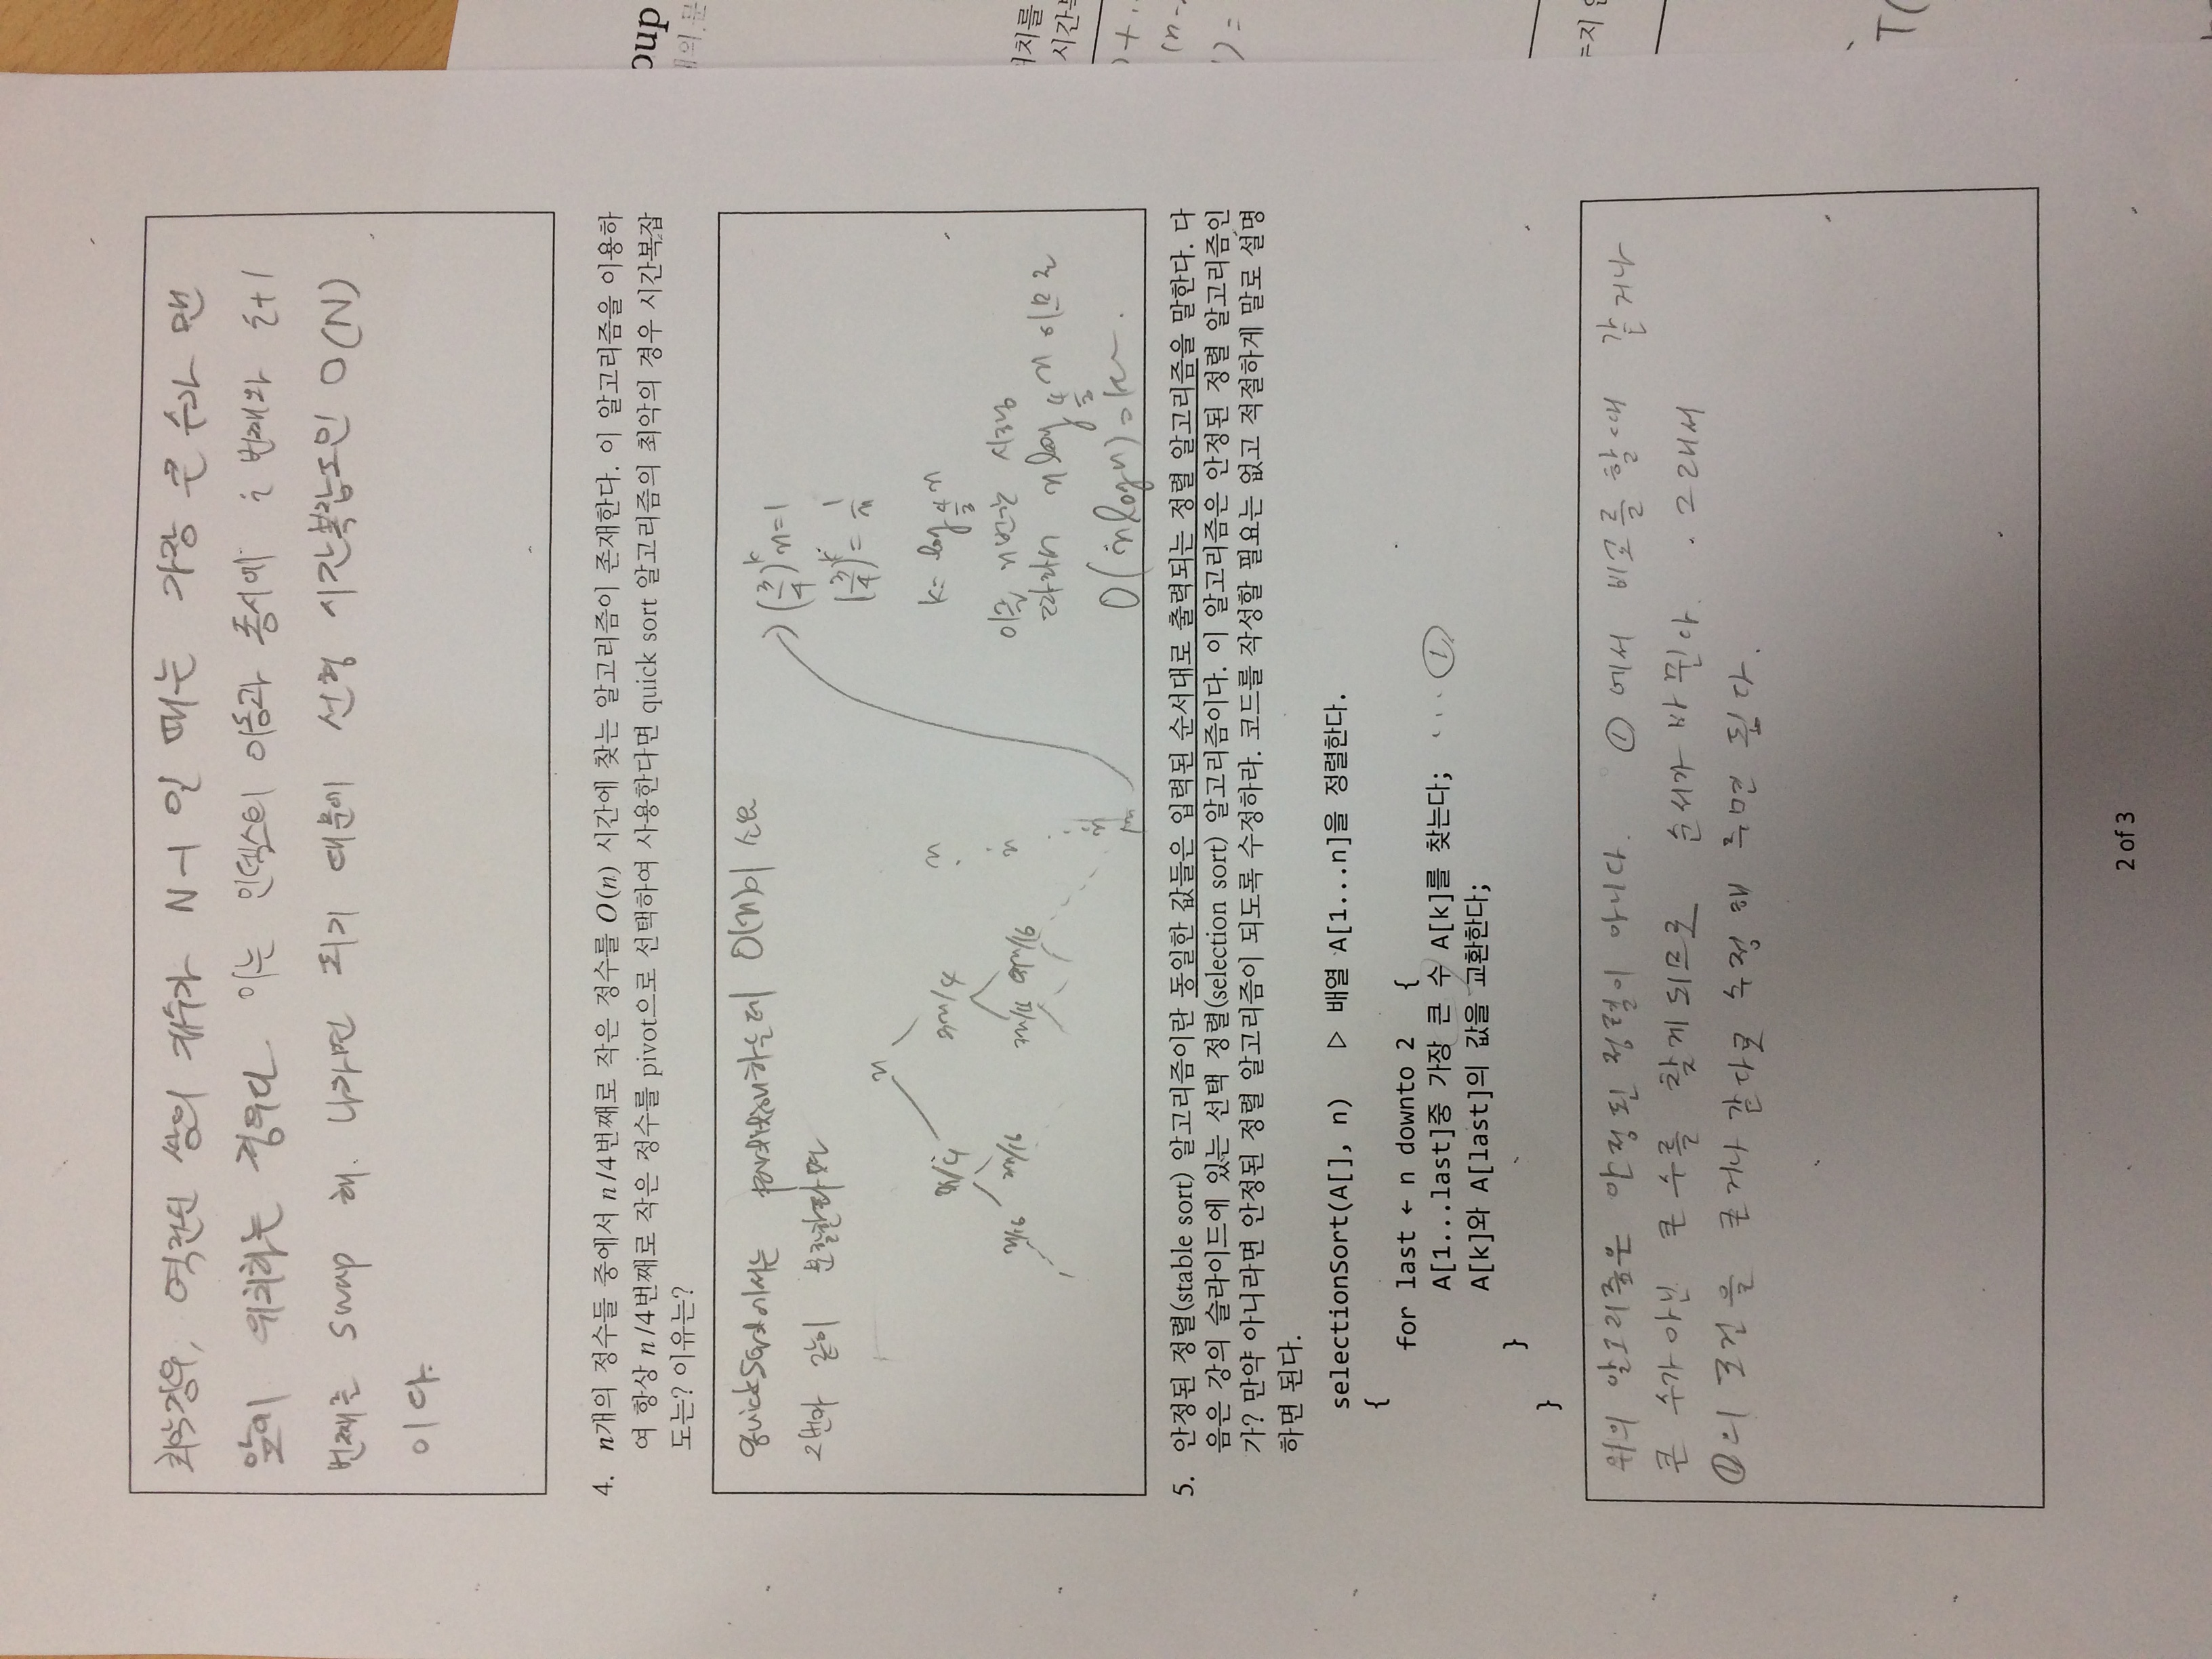 최악경우, 역전된 쌍의 개수가 N-1 일 때는 가장 큰 수가 맨
앞에 위치하는 경우다 이는 인덱스의 이동과 동시에 i 번째와 i+1
번째를 swap 해 나가면 되기 때문에 선형 시간복잡도인 O(N)
이다.
4. n개의 정수들 중에서 n/4번째로 작은 정수를 O(n) 시간에 찾는 알고리즘이 존재한다. 이 알고리즘을 이용하
여 항상 n/4번째로 작은 정수를 pivot으로 선택하여 사용한다면 quick sort 알고리즘의 최악의 경우 시간복잡
도는? 이유는?
quickSort에서는 partition하는데 O(n)이 소요
2번과 같이 분할한다면
n
n/4 3n/4 n
n/16 3n/16 3n/16 9n/16 n
n
(3/4)^k n=1
(3/4)^k = 1/n
k= log_{4/3} n
이를 n번 시행
따라서 n log_{4/3} n 이므로
O(n log n)
5. 안정된 정렬(stable sort) 알고리즘이란 동일한 값들은 입력된 순서대로 출력되는 정렬 알고리즘을 말한다. 다
음은 강의 슬라이드에 있는 선택 정렬(selection sort) 알고리즘이다. 이 알고리즘은 안정된 정렬 알고리즘인
가? 만약 아니라면 안정된 정렬 알고리즘이 되도록 수정하라. 코드를 작성할 필요는 없고 적절하게 말로 설명
하면 된다.
selectionSort(A[], n) ▷ 배열 A[1...n]을 정렬한다.
{
for last ← n downto 2 {
A[1...last]중 가장 큰 수 A[k]를 찾는다; ... ①
A[k]와 A[last]의 값을 교환한다;
}
}
위의 알고리즘은 안정된 정렬이 아니다. ① 에서 비교를 할 때 같거나
큰 수가 아닌 큰 수를 찾게 되므로 순서가 바뀐다. 그래서
①의 조건을 크거나 같다로 수정해 주면 된다.
2 of 3
oup
치를
시간
T(